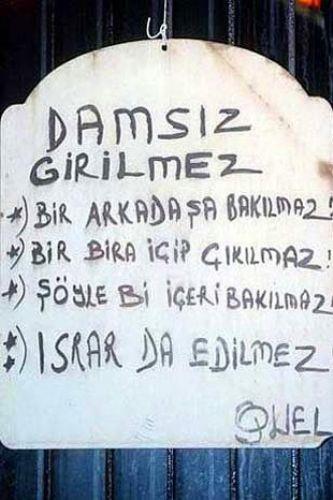 DAMSIZ
GİRİLMEZ
*) BİR ARKADAŞA BAKILMAZ!
*) BİR BİRA İÇİP ÇIKILMAZ!
*) ŞÖYLE Bİ İÇERİ BAKILMAZ
*) ISRAR DA EDİLMEZ